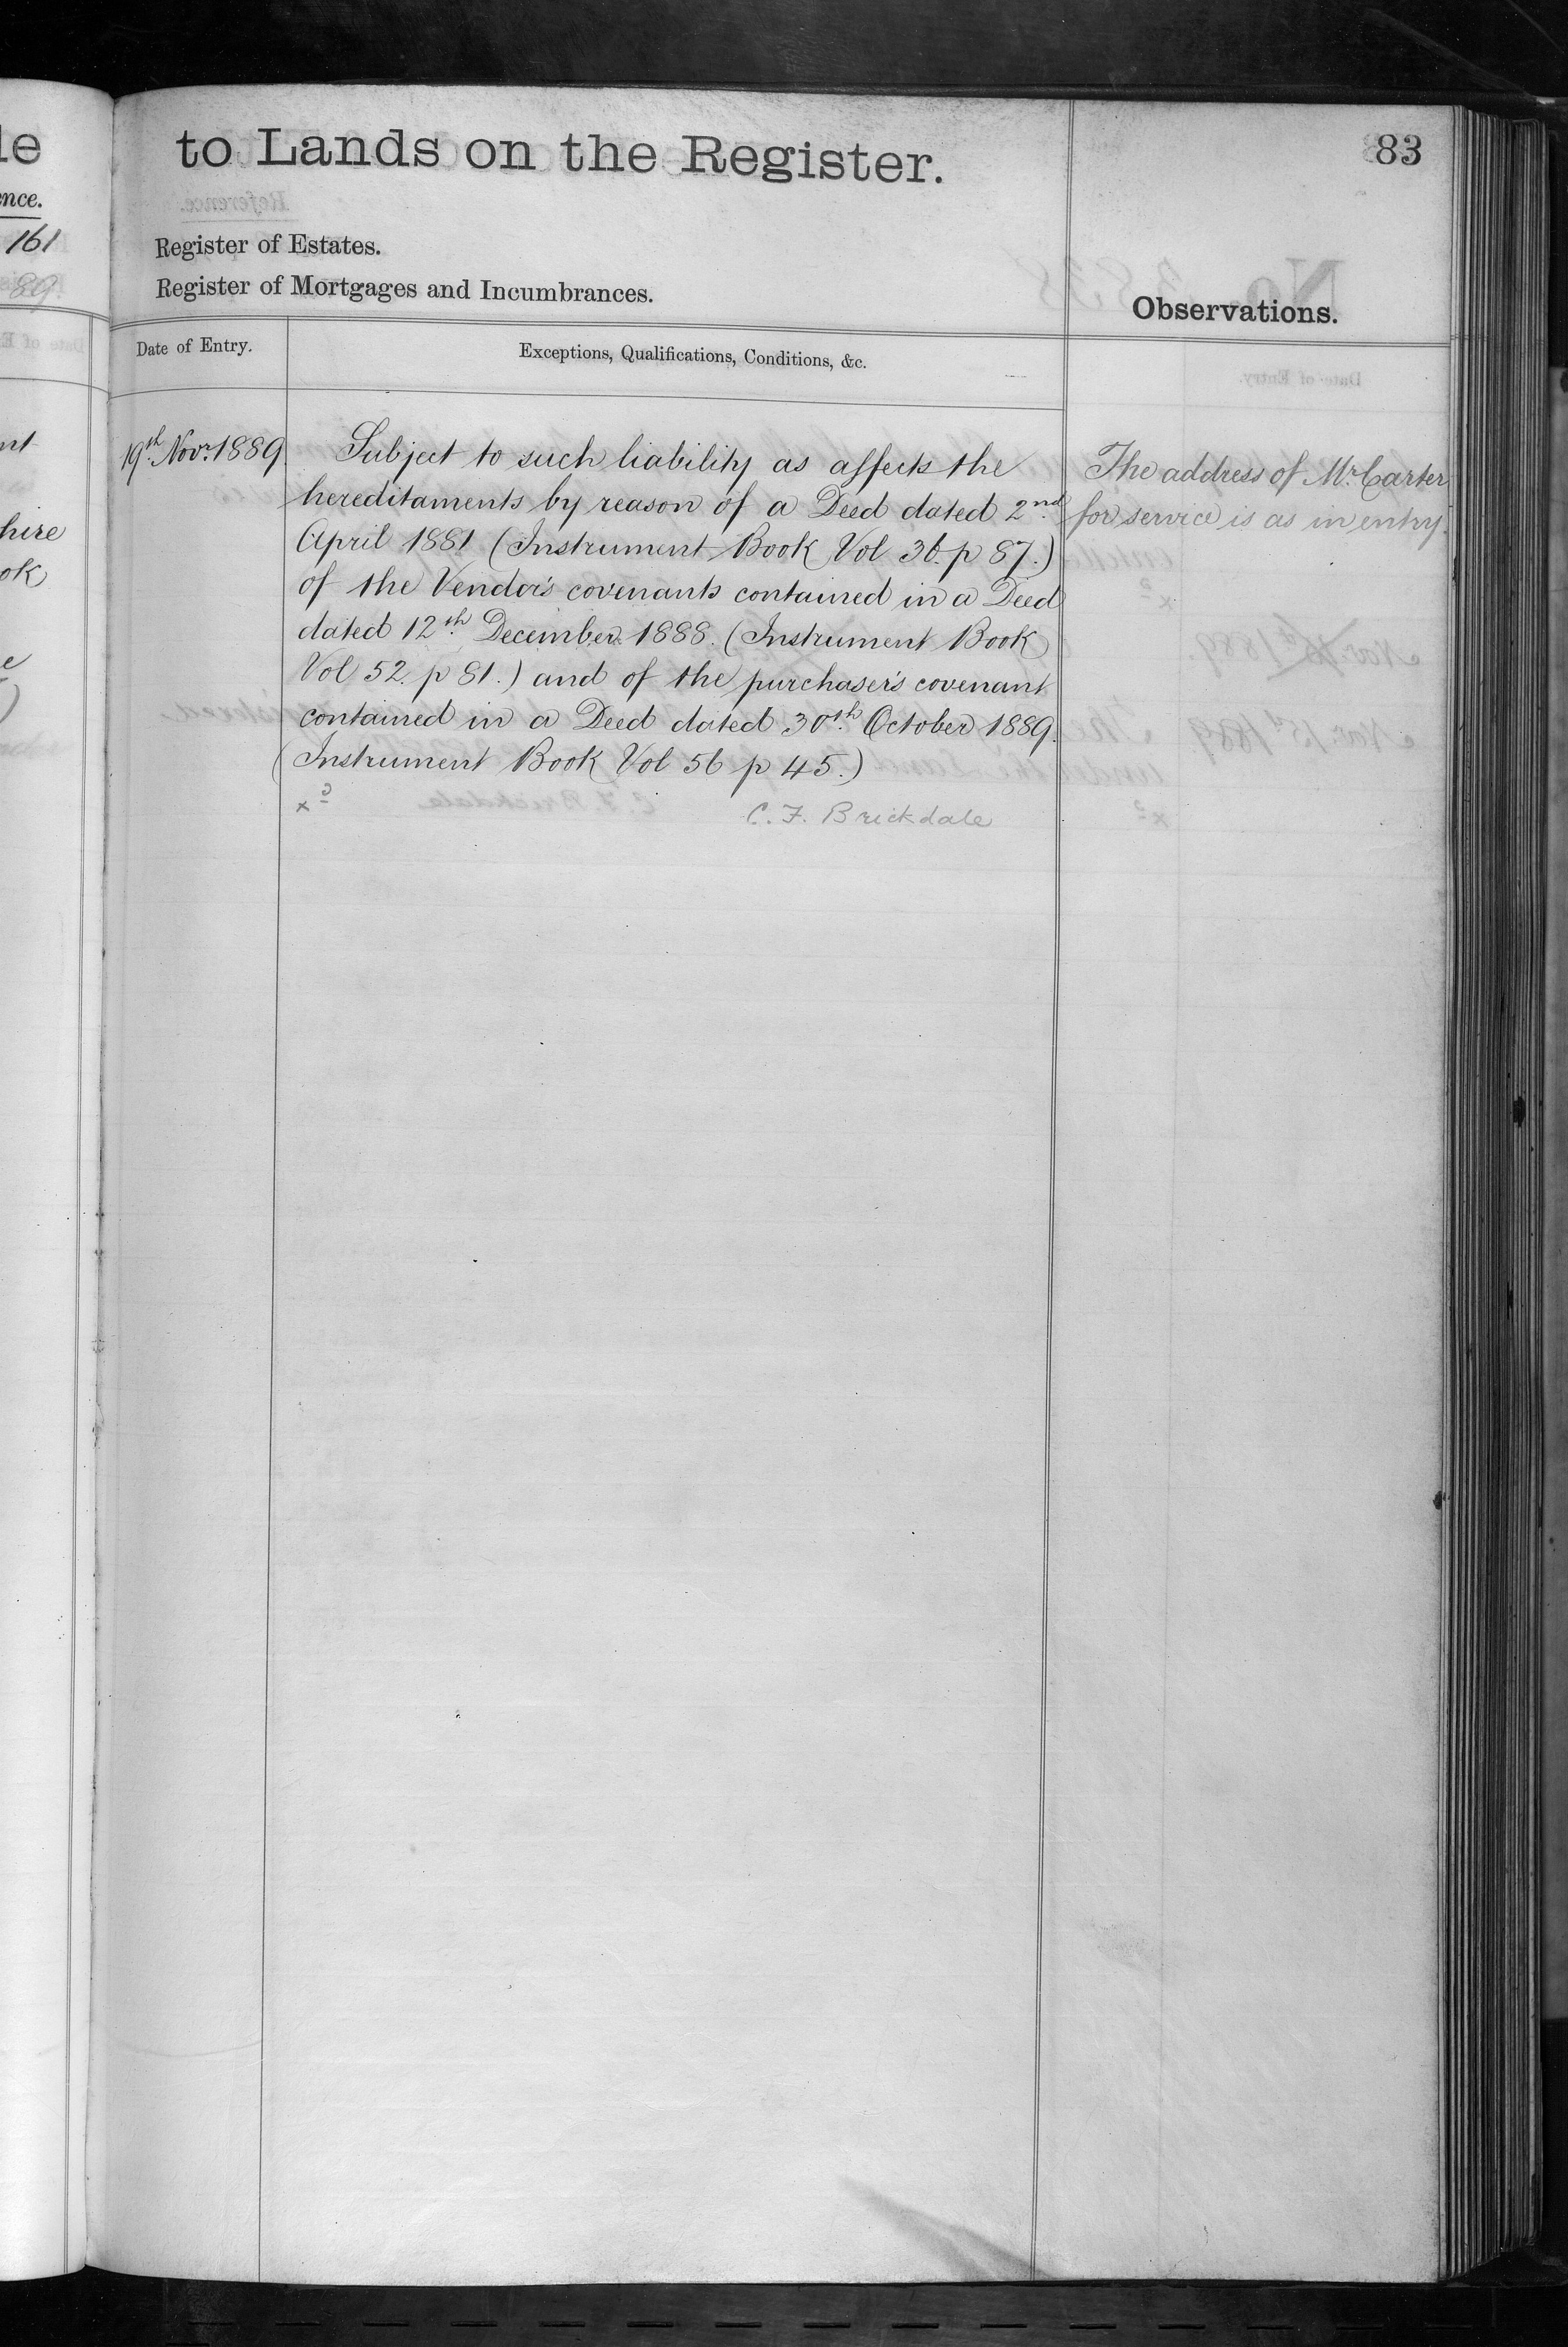 le
to Lands on the Register.
83
nce.
161
89.
Register of Estates.
Register of Mortgages and Incumbrances.
Observations.
Date of Entry.
Exceptions, Qualifications, Conditions, &c.
19th. Novr. 1889.
Subject to such liability as affects the
hereditaments by reason of a Deed dated 2nd.
April 1881 (Instrument Book Vol 36. p 87.)
of the Vendor's covenants contained in a Deed
dated 12th. December 1888. (Instrument Book
Vol 52. p 81.) and of the purchaser's covenant
contained in a Deed dated 30th. October 1889.
(Instrument Book Vol 56 p 45.)
C. F. Brickdale
The address of Mr. Carter
for service is as in entry.
nt
hire
ok
e
)